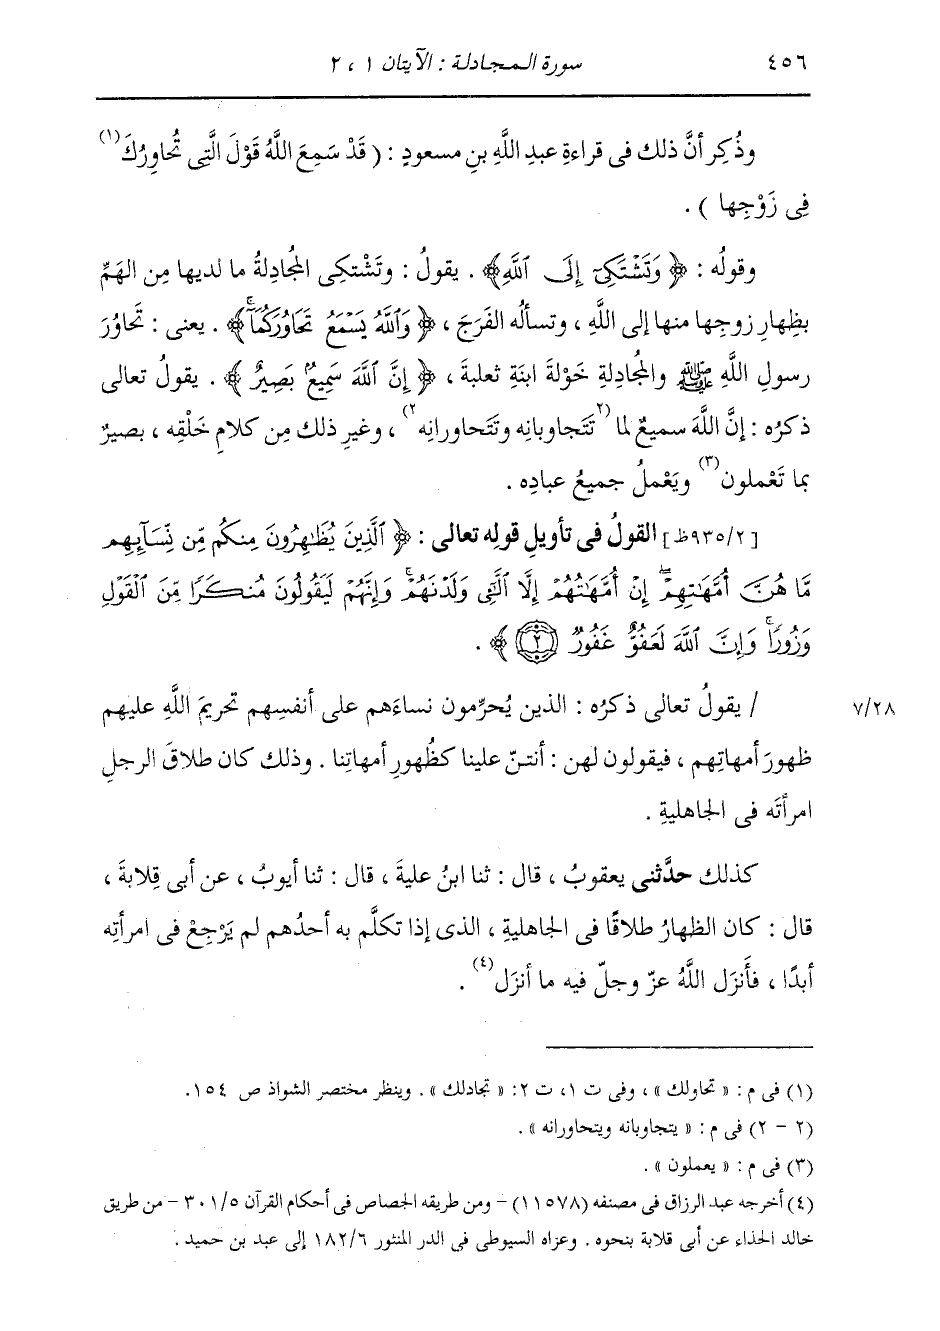 ٤٥٦ سورة المجادلة : الآيتان ١ ، ٢
وذُكِر أنَّ ذلك فى قراءةِ عبدِ اللَّهِ بنِ مسعودٍ : ( قَدْ سَمِعَ اللَّهُ قَوْلَ الَّتِى تُحاوِرُكَ(١)
فِى زَوْجِها ) .
وقولُه : ﴿ وَتَشْتَكِىٓ إِلَى ٱللَّهِ ﴾ . يقولُ : وتَشْتكِى المُجادِلةُ ما لديها مِن الهَمِّ
بظِهارِ زوجِها منها إلى اللَّهِ ، وتسألُه الفَرَجَ ، ﴿ وَٱللَّهُ يَسْمَعُ تَحَاوُرَكُمَآ ﴾ . يعنى : تَحَاوُرَ
رسولِ اللَّهِ ﷺ والمُجادِلةِ خَوْلةَ ابنَةِ ثعلبةَ ، ﴿ إِنَّ ٱللَّهَ سَمِيعٌۢ بَصِيرٌ ﴾ . يقولُ تعالى
ذكرُه : إنَّ اللَّهَ سميعٌ لما (٢تَتَجاوبانِه وتَتَحاورانِه٢) ، وغيرِ ذلك مِن كلامِ خَلْقِه ، بصيرٌ
بما تَعْملون(٣) ويَعْملُ جميعُ عبادِه .
[٩٣٥/٢ظ] القولُ فى تأويلِ قولِه تعالى : ﴿ ٱلَّذِينَ يُظَٰهِرُونَ مِنكُم مِّن نِّسَآئِهِم
مَّا هُنَّ أُمَّهَٰتِهِمْ إِنْ أُمَّهَٰتُهُمْ إِلَّا ٱلَّٰٓـِٔى وَلَدْنَهُمْ وَإِنَّهُمْ لَيَقُولُونَ مُنكَرًا مِّنَ ٱلْقَوْلِ
وَزُورًا وَإِنَّ ٱللَّهَ لَعَفُوٌّ غَفُورٌ ٢ ﴾ .
٧/٢٨ / يقولُ تعالى ذكرُه : الذين يُحرِّمون نساءَهم على أنفسِهم تحريمَ اللَّهِ عليهم
ظهورَ أمهاتِهم ، فيقولون لهن : أنتنّ علينا كظُهورِ أمهاتِنا . وذلك كان طلاقَ الرجلِ
امرأتَه فى الجاهليةِ .
كذلك حدَّثنى يعقوبُ ، قال : ثنا ابنُ عليةَ ، قال : ثنا أيوبُ ، عن أبى قِلابةَ ،
قال : كان الظهارُ طلاقًا فى الجاهليةِ ، الذى إذا تكلَّم به أحدُهم لم يَرْجِعْ فى امرأتِه
أبدًا ، فأَنزَل اللَّهُ عزّ وجلّ فيه ما أنزَل(٤) .
(١) فى م : « تحاولك » ، وفى ت ١، ت ٢: « تجادلك » . وينظر مختصر الشواذ ص ١٥٤.
(٢ - ٢) فى م : « يتجاوبانه ويتحاورانه » .
(٣) فى م : « يعملون » .
(٤) أخرجه عبد الرزاق فى مصنفه (١١٥٧٨) - ومن طريقه الجصاص فى أحكام القرآن ٣٠١/٥ - من طريق
خالد الحذاء عن أبى قلابة بنحوه . وعزاه السيوطى فى الدر المنثور ١٨٢/٦ إلى عبد بن حميد .